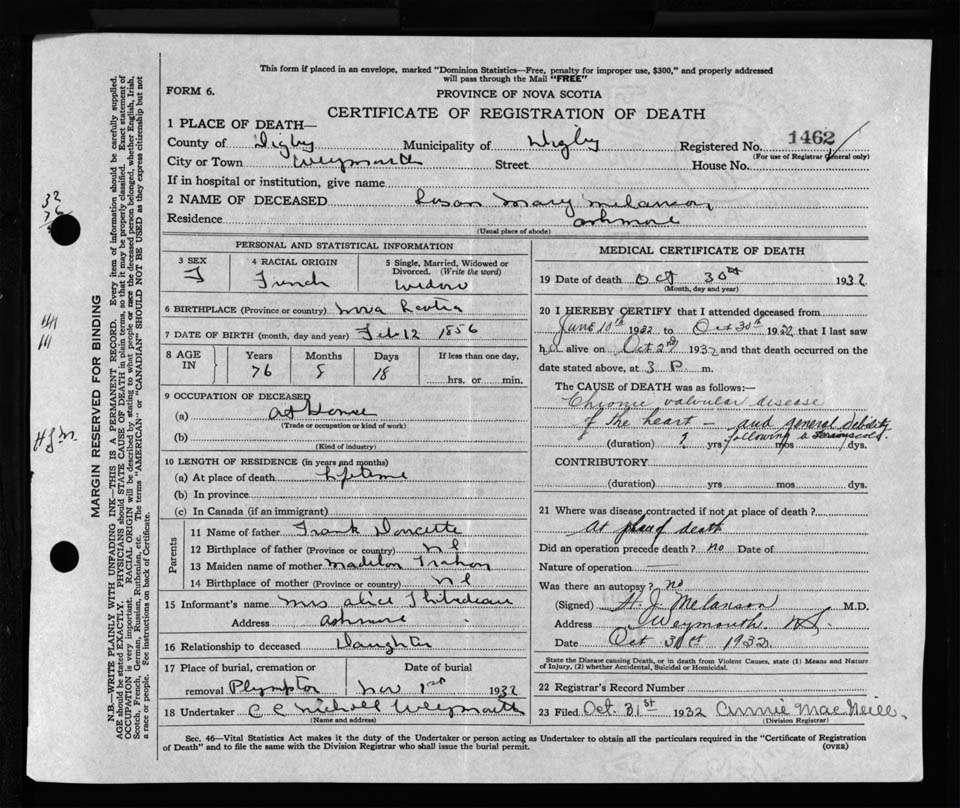 This form if placed in an envelope, marked "Dominion Statistics—Free, penalty for improper use, $300," and properly addressed
will pass through the Mail "FREE"
FORM 6.
PROVINCE OF NOVA SCOTIA
CERTIFICATE OF REGISTRATION OF DEATH
1 PLACE OF DEATH—
County of Digby Municipality of Digby Registered No. 1462
(For use of Registrar General only)
City or Town Weymouth Street House No.
If in hospital or institution, give name
2 NAME OF DECEASED Susan Mary Melanson
Residence Ashmore
(Usual place of abode)
PERSONAL AND STATISTICAL INFORMATION
3 SEX 4 RACIAL ORIGIN 5 Single, Married, Widowed or
Divorced. (Write the word)
F French Widow
6 BIRTHPLACE (Province or country) Nova Scotia
7 DATE OF BIRTH (month, day and year) Feb 12 1856
8 AGE IN Years Months Days If less than one day,
76 8 18 hrs. or min.
9 OCCUPATION OF DECEASED
(a) At Home
(Trade or occupation or kind of work)
(b)
(Kind of industry)
10 LENGTH OF RESIDENCE (in years and months)
(a) At place of death Lifetime
(b) In province
(c) In Canada (if an immigrant)
Parents
11 Name of father Frank Doucette
12 Birthplace of father (Province or country) N S
13 Maiden name of mother Madelon Trahan
14 Birthplace of mother (Province or country) N S
15 Informant's name Mrs Alice Thibodeau
Address Ashmore
16 Relationship to deceased Daughter
17 Place of burial, cremation or Date of burial
removal Plympton Nov 1st 1932
18 Undertaker C C Nicholl Weymouth
(Name and address)
MEDICAL CERTIFICATE OF DEATH
19 Date of death Oct 30th 1932
(Month, day and year)
20 I HEREBY CERTIFY that I attended deceased from
June 10th 1932 to Oct 30th 1932, that I last saw
h alive on Oct 2nd 1932 and that death occurred on the
date stated above, at 3 P. m.
The CAUSE OF DEATH was as follows:—
Chronic valvular disease
of the heart — and general debility
following a
(duration) yrs mos dys.
CONTRIBUTORY
(duration) yrs mos dys.
21 Where was disease contracted if not at place of death?
At place of death
Did an operation precede death? no Date of
Nature of operation —
Was there an autopsy? no
(Signed) H. J. Melanson M.D.
Address Weymouth N.S.
Date Oct 31st 1932
State the Disease causing Death, or in death from Violent Causes, state (1) Means and Nature
of Injury, (2) whether Accidental, Suicidal or Homicidal.
22 Registrar's Record Number
23 Filed Oct. 31st 1932 Annie MacNeill.
(Division Registrar)
Sec. 46—Vital Statistics Act makes it the duty of the Undertaker or person acting as Undertaker to obtain all the particulars required in the "Certificate of Registration
of Death" and to file the same with the Division Registrar who shall issue the burial permit.
(OVER)
MARGIN RESERVED FOR BINDING
N.B.—WRITE PLAINLY WITH UNFADING INK—THIS IS A PERMANENT RECORD. Every item of information should be carefully supplied.
AGE should be stated EXACTLY. PHYSICIANS should STATE CAUSE OF DEATH in plain terms, so that it may be properly classified. Exact statement of
OCCUPATION is very important. RACIAL ORIGIN will be described by stating to what people or race the deceased person belonged, whether English, Irish,
Scotch, French, German, Russian, Ruthenian, etc. The terms "AMERICAN" or "CANADIAN" SHOULD NOT BE USED as they express citizenship but not
a race or people. See instructions on back of Certificate.
32
76
H J M.